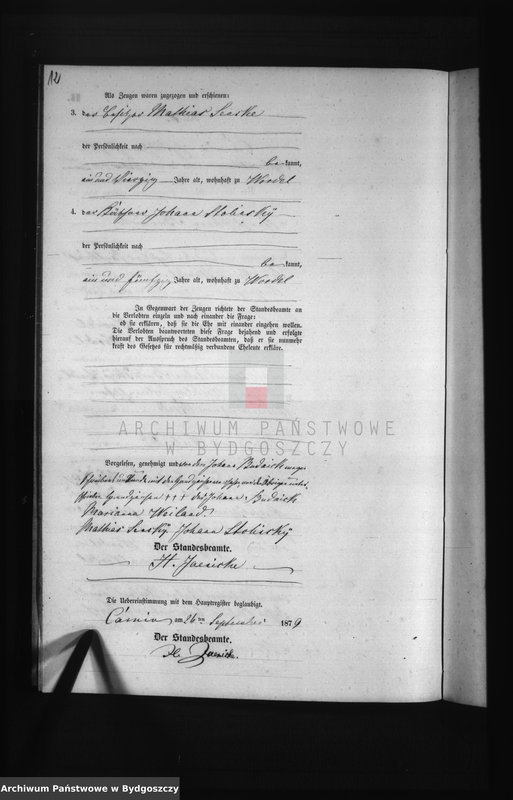 12
Als Zeugen waren zugezogen und erschienen:
3. der Besitzer Mathias Senske
der Persönlichkeit nach
be kannt,
ein und Vierzig Jahre alt, wohnhaft zu Wordel
4. der Käthner Johann Stobisky
der Persönlichkeit nach
be kannt,
ein und fünfzig Jahre alt, wohnhaft zu Wordel
In Gegenwart der Zeugen richtete der Standesbeamte an
die Verlobten einzeln und nach einander die Frage:
ob sie erklären, daß sie die Ehe mit einander eingehen wollen.
Die Verlobten beantworteten diese Frage bejahend und erfolgte
hierauf der Ausspruch des Standesbeamten, daß er sie nunmehr
kraft des Gesetzes für rechtmäßig verbundene Eheleute erkläre.
ARCHIWUM PAŃSTWOWE
W BYDGOSZCZY
Vorgelesen, genehmigt und von dem Johann Budnick wegen
Handzeichen +++ des Johann Budnick
Marianna Weiland
Mathias Sensky Johann Stobisky
Der Standesbeamte.
H. Jaenicke
Die Uebereinstimmung mit dem Hauptregister beglaubigt.
am 26 ten September 1879
Der Standesbeamte.
Jaenicke.
Archiwum Państwowe w Bydgoszczy